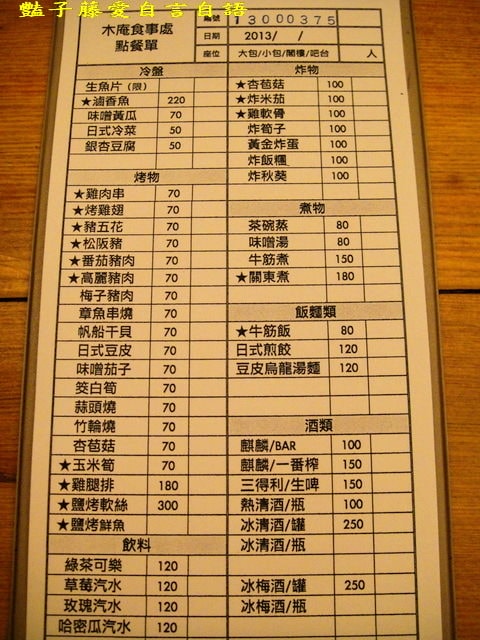 豔子藤愛自言自語
木庵食事處
點餐單
編號 13000375
日期 2013/ /
座位 大包/小包/閣樓/吧台 人
冷盤
生魚片 (限)
★滷香魚 220
味噌黃瓜 70
日式冷菜 50
銀杏豆腐 50
烤物
★雞肉串 70
★烤雞翅 70
★豬五花 70
★松阪豬 70
★番茄豬肉 70
★高麗豬肉 70
梅子豬肉 70
章魚串燒 70
帆船干貝 70
日式豆皮 70
味噌茄子 70
筊白筍 70
蒜頭燒 70
竹輪燒 70
杏苞菇 70
★玉米筍 70
★雞腿排 180
★鹽烤軟絲 300
★鹽烤鮮魚
飲料
綠茶可樂 120
草莓汽水 120
玫瑰汽水 120
哈密瓜汽水 120
炸物
★杏苞菇 100
★炸米茄 100
★雞軟骨 100
炸筍子 100
黃金炸蛋 100
炸飯糰 100
炸秋葵 100
煮物
茶碗蒸 80
味噌湯 80
牛筋煮 150
★關東煮 180
飯麵類
★牛筋飯 80
日式煎餃 120
豆皮烏龍湯麵 120
酒類
麒麟/BAR 100
麒麟/一番榨 150
三得利/生啤 150
熱清酒/瓶 100
冰清酒/罐 250
冰清酒/瓶
冰梅酒/罐 250
冰梅酒/瓶